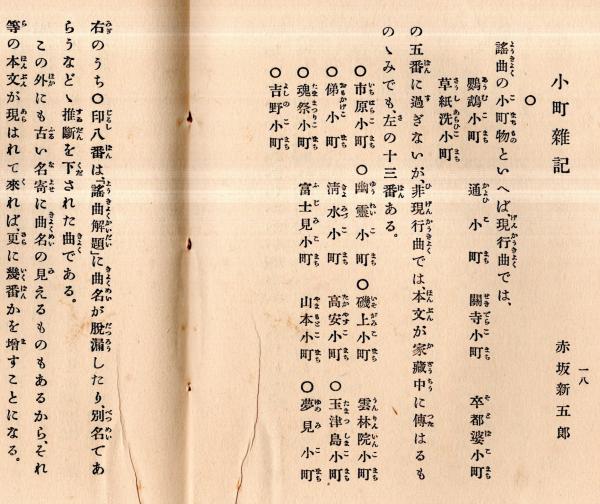 小町雜記
赤坂新五郎
一八
○
謠曲の小町物といへば、現行曲では、
鸚鵡小町 通小町 關寺小町 卒都婆小町
草紙洗小町
の五番に過ぎないが、非現行曲では、本文が家藏中に傳はるも
のゝみでも、左の十三番ある。
○市原小町 ○幽靈小町 ○磯上小町 雲林院小町
○俤小町 淸水小町 高安小町 ○玉津島小町
○魂祭小町 富士見小町 山本小町 ○夢見小町
○吉野小町
右のうち○印八番は、『謠曲解題』に曲名が脫漏したり、別名であ
らうなどゝ推斷を下された曲である。
この外にも古い名寄に曲名の見えるものもあるから、それ
等の本文が現はれて來れば、更に幾番かを增すことになる。